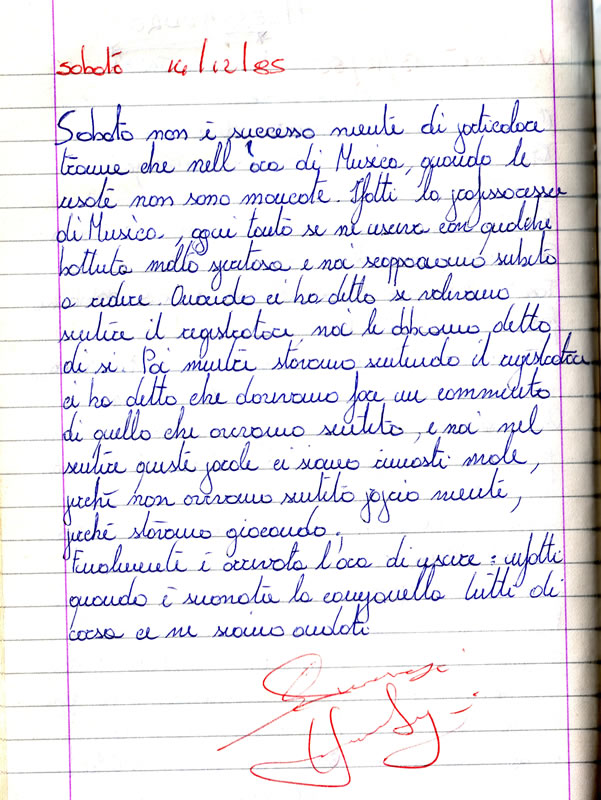 sabato 14/12/85
Sabato non è successo niente di particolare
tranne che nell'ora di Musica, quando le
risate non sono mancate. Ifatti la professoressa
di Musica, ogni tanto se ne usciva con qualche
battuta molto spiritosa e noi scoppiavamo subito
a ridere. Quando ci ha detto se volevamo
sentire il registratore, noi le abbiamo detto
di si. Poi mentre stavamo sentendo il registratore
ci ha detto che dovevamo fare un commento
di quello che avevamo sentito, e noi nel
sentire queste parole ci siamo rimasti male,
perchè non avevamo sentito proprio niente,
perchè stavamo giocando.
Finalmente è arrivata l'ora di uscire: infatti
quando è suonata la campanella tutti di
corsa ce ne siamo andati